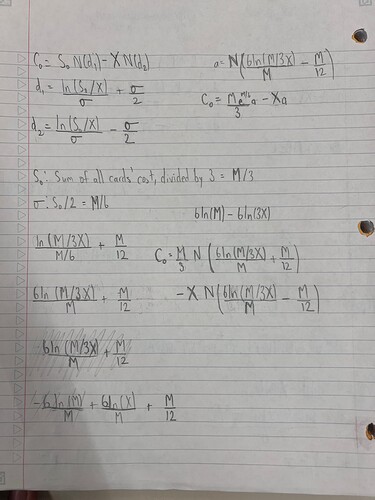 C₀ = S₀ N(d₁) - X N(d₂)
d₁ = ln(S₀/X)/σ + σ/2
d₂ = ln(S₀/X)/σ - σ/2
a = N(6ln(M/3X)/M - M/12)
C₀ = Me^(M/6)/3 a - Xa
S₀: Sum of all cards' cost, divided by 3 = M/3
σ: S₀/2 = M/6
6ln(M) - 6ln(3X)
ln(M/3X)/M/6 + M/12
C₀ = M/3 N(6ln(M/3X)/M + M/12)
6ln(M/3X)/M + M/12
- X N(6ln(M/3X)/M - M/12)
6ln(M/3X)/M + M/12
-6ln(M)/M + 6ln(X)/M + M/12